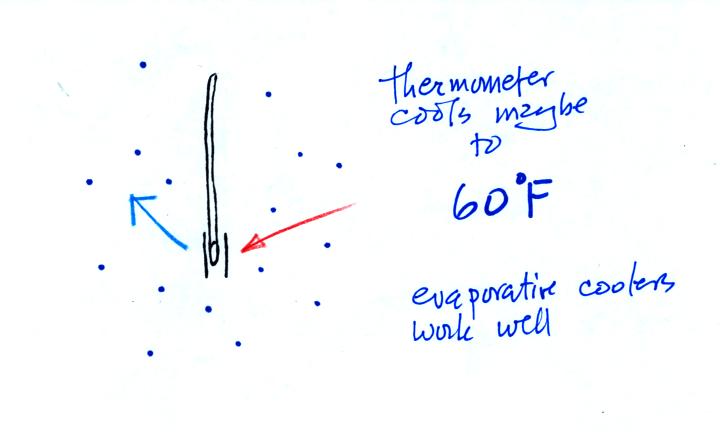 thermometer
cools maybe
to
60°F
evaporative coolers
work well